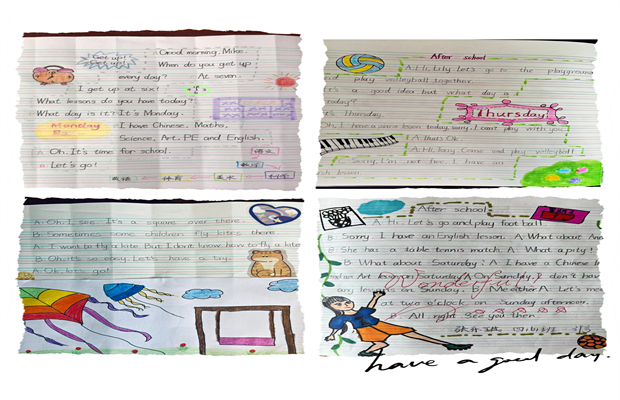 Get up!
Get up!
Good morning, Mike.
When do you get up
every day? At seven.
I get up at six!
What lessons do you have today?
What day is it? It's Monday.
Monday
I have Chinese, Maths,
Science, Art, PE and English.
Oh. It's time for school.
语文
Let's go!
英语
体育
美术
科学
After school
A: Hi, Lily. Let's go to the playground
and play volleyball together.
It's a good idea. but what day is
today?
It's Thursday.
Thursday
Oh, I have a piano lesson today. sorry, I can't play with you
A: That's OK.
A: Hi, Tony. Come and play volleyball
Sorry, I'm not free. I have an
lesson.
A: Oh, I see. It's a square over there.
B: Sometimes some children fly kites there.
A: I want to fly a kite. But I don't know how to fly a kite
B: Oh, it's so easy. Let's have a try.
A: Ok, let's go!
After school
A: Hi. Let's go and play football.
B: Sorry. I have an English lesson. A: What about
B: She has a table tennis match. A: What a pity!
B: What about Saturday? A: I have a Chinese
and an Art Saturday. A: On Sunday, I don't have
any lesson on Sunday. B: Me either. A: Let's meet
at two o'clock on Sunday afternoon.
Wonderful
B: All right. See you then.
have a good day.